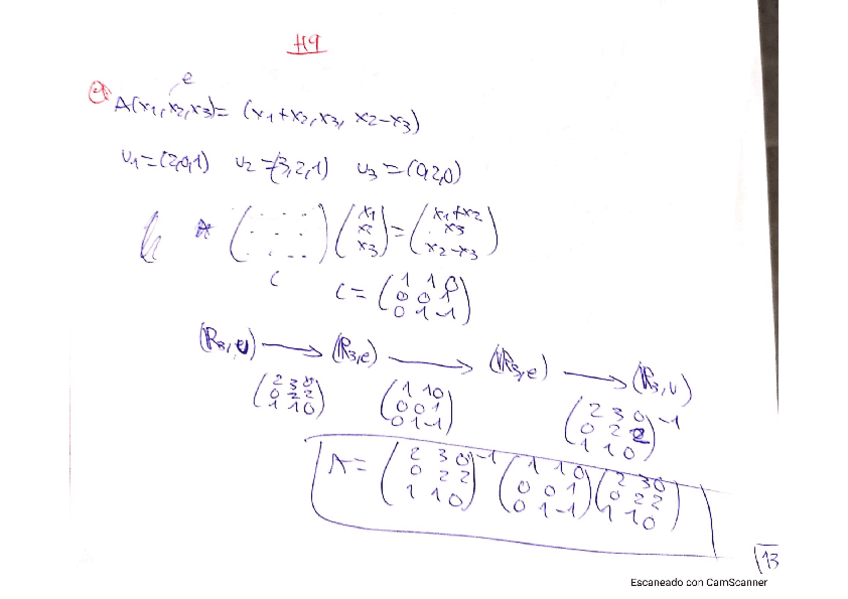 H9
e
A(x1,x2,x3)= (x1+x2,x3, x2-x3)
u1=(2,0,1) u2=(3,2,1) u3=(0,2,0)
A (. . . / . . . / . . .) (x1 / x2 / x3) = (x1+x2 / x3 / x2-x3)
C
C = (1 1 0 / 0 0 1 / 0 1 -1)
(R3,u) → (R3,e) → (R3,e) → (R3,u)
(2 3 0 / 0 2 2 / 1 1 0) (1 1 0 / 0 0 1 / 0 1 -1) (2 3 0 / 0 2 2 / 1 1 0)-1
A = (2 3 0 / 0 2 2 / 1 1 0)-1 (1 1 0 / 0 0 1 / 0 1 -1) (2 3 0 / 0 2 2 / 1 1 0)
13
Escaneado con CamScanner